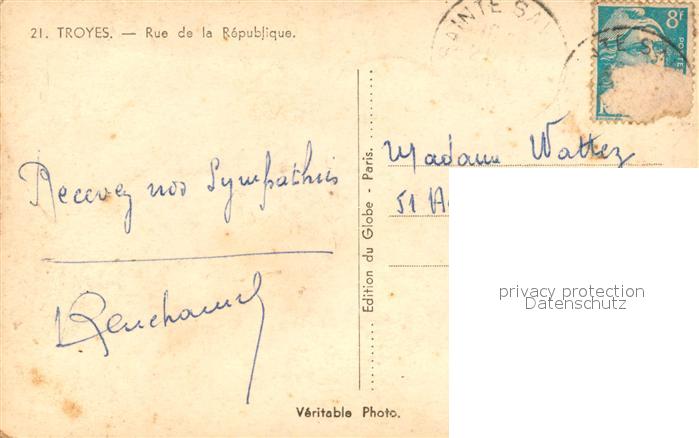 21. TROYES. — Rue de la République.
SAINTE SA
TE S
8F
POSTES
Recevez nos Sympathies
Madame Wattez
51
Edition du Globe - Paris.
Véritable Photo.
privacy protection
Datenschutz